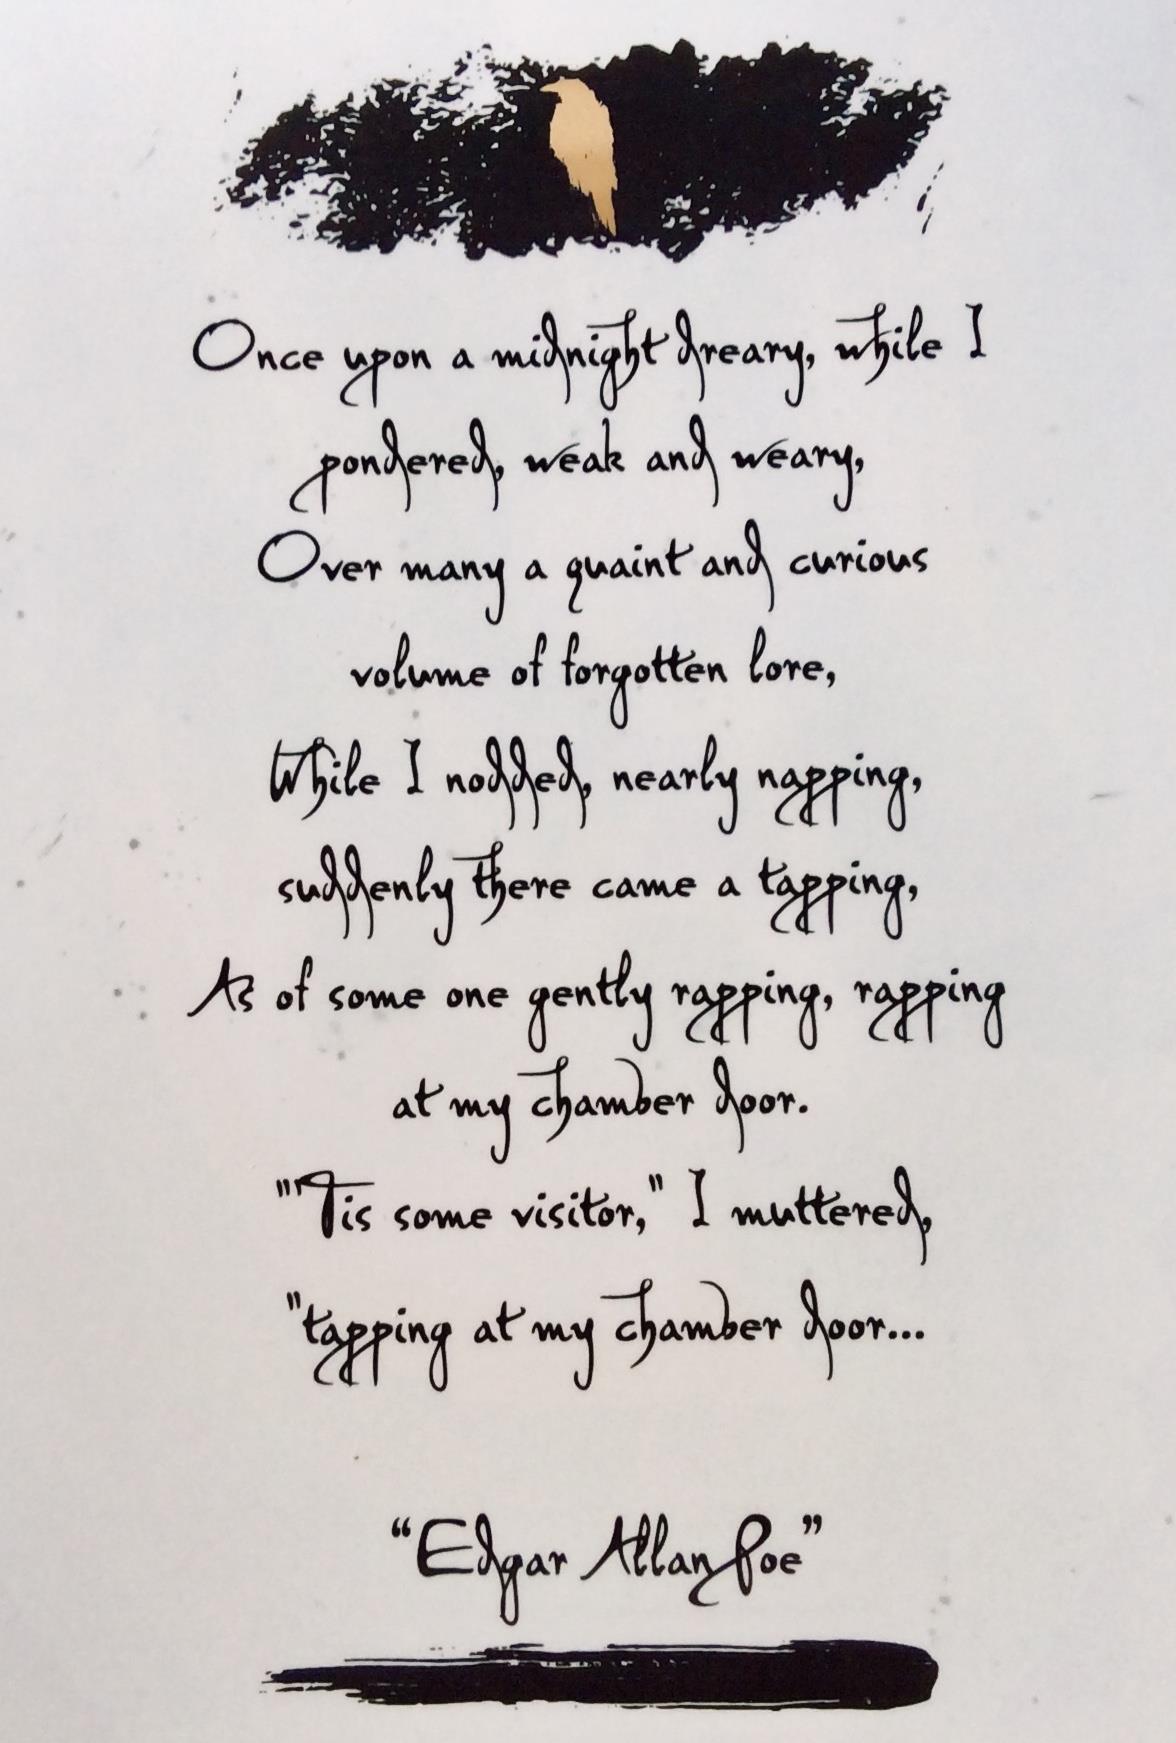 Once upon a midnight dreary, while I
pondered, weak and weary,
Over many a quaint and curious
volume of forgotten lore,
While I nodded, nearly napping,
suddenly there came a tapping,
As of some one gently rapping, rapping
at my chamber door.
"'Tis some visitor," I muttered,
"tapping at my chamber door...
“Edgar Allan Poe”